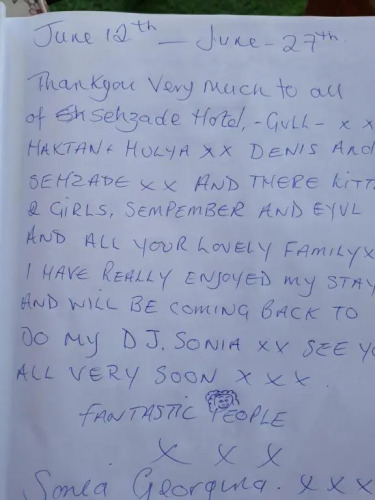 June 12th — June - 27th.
Thankyou Very Much to all
of Sehzade Hotel, - GULL - x x
HAKTAN + HULYA xx DENIS AND
SEHZADE xx AND THERE KITT
& GIRLS, SEMPEMBER AND EYUL
AND ALL YOUR LOVELY FAMILY x
I HAVE REALLY ENJOYED MY STAY
AND WILL BE COMING BACK TO
DO MY DJ. SONIA xx SEE YO
ALL VERY SOON x x x.
FANTASTIC PEOPLE
x x x
Sonia Georgina. x x x